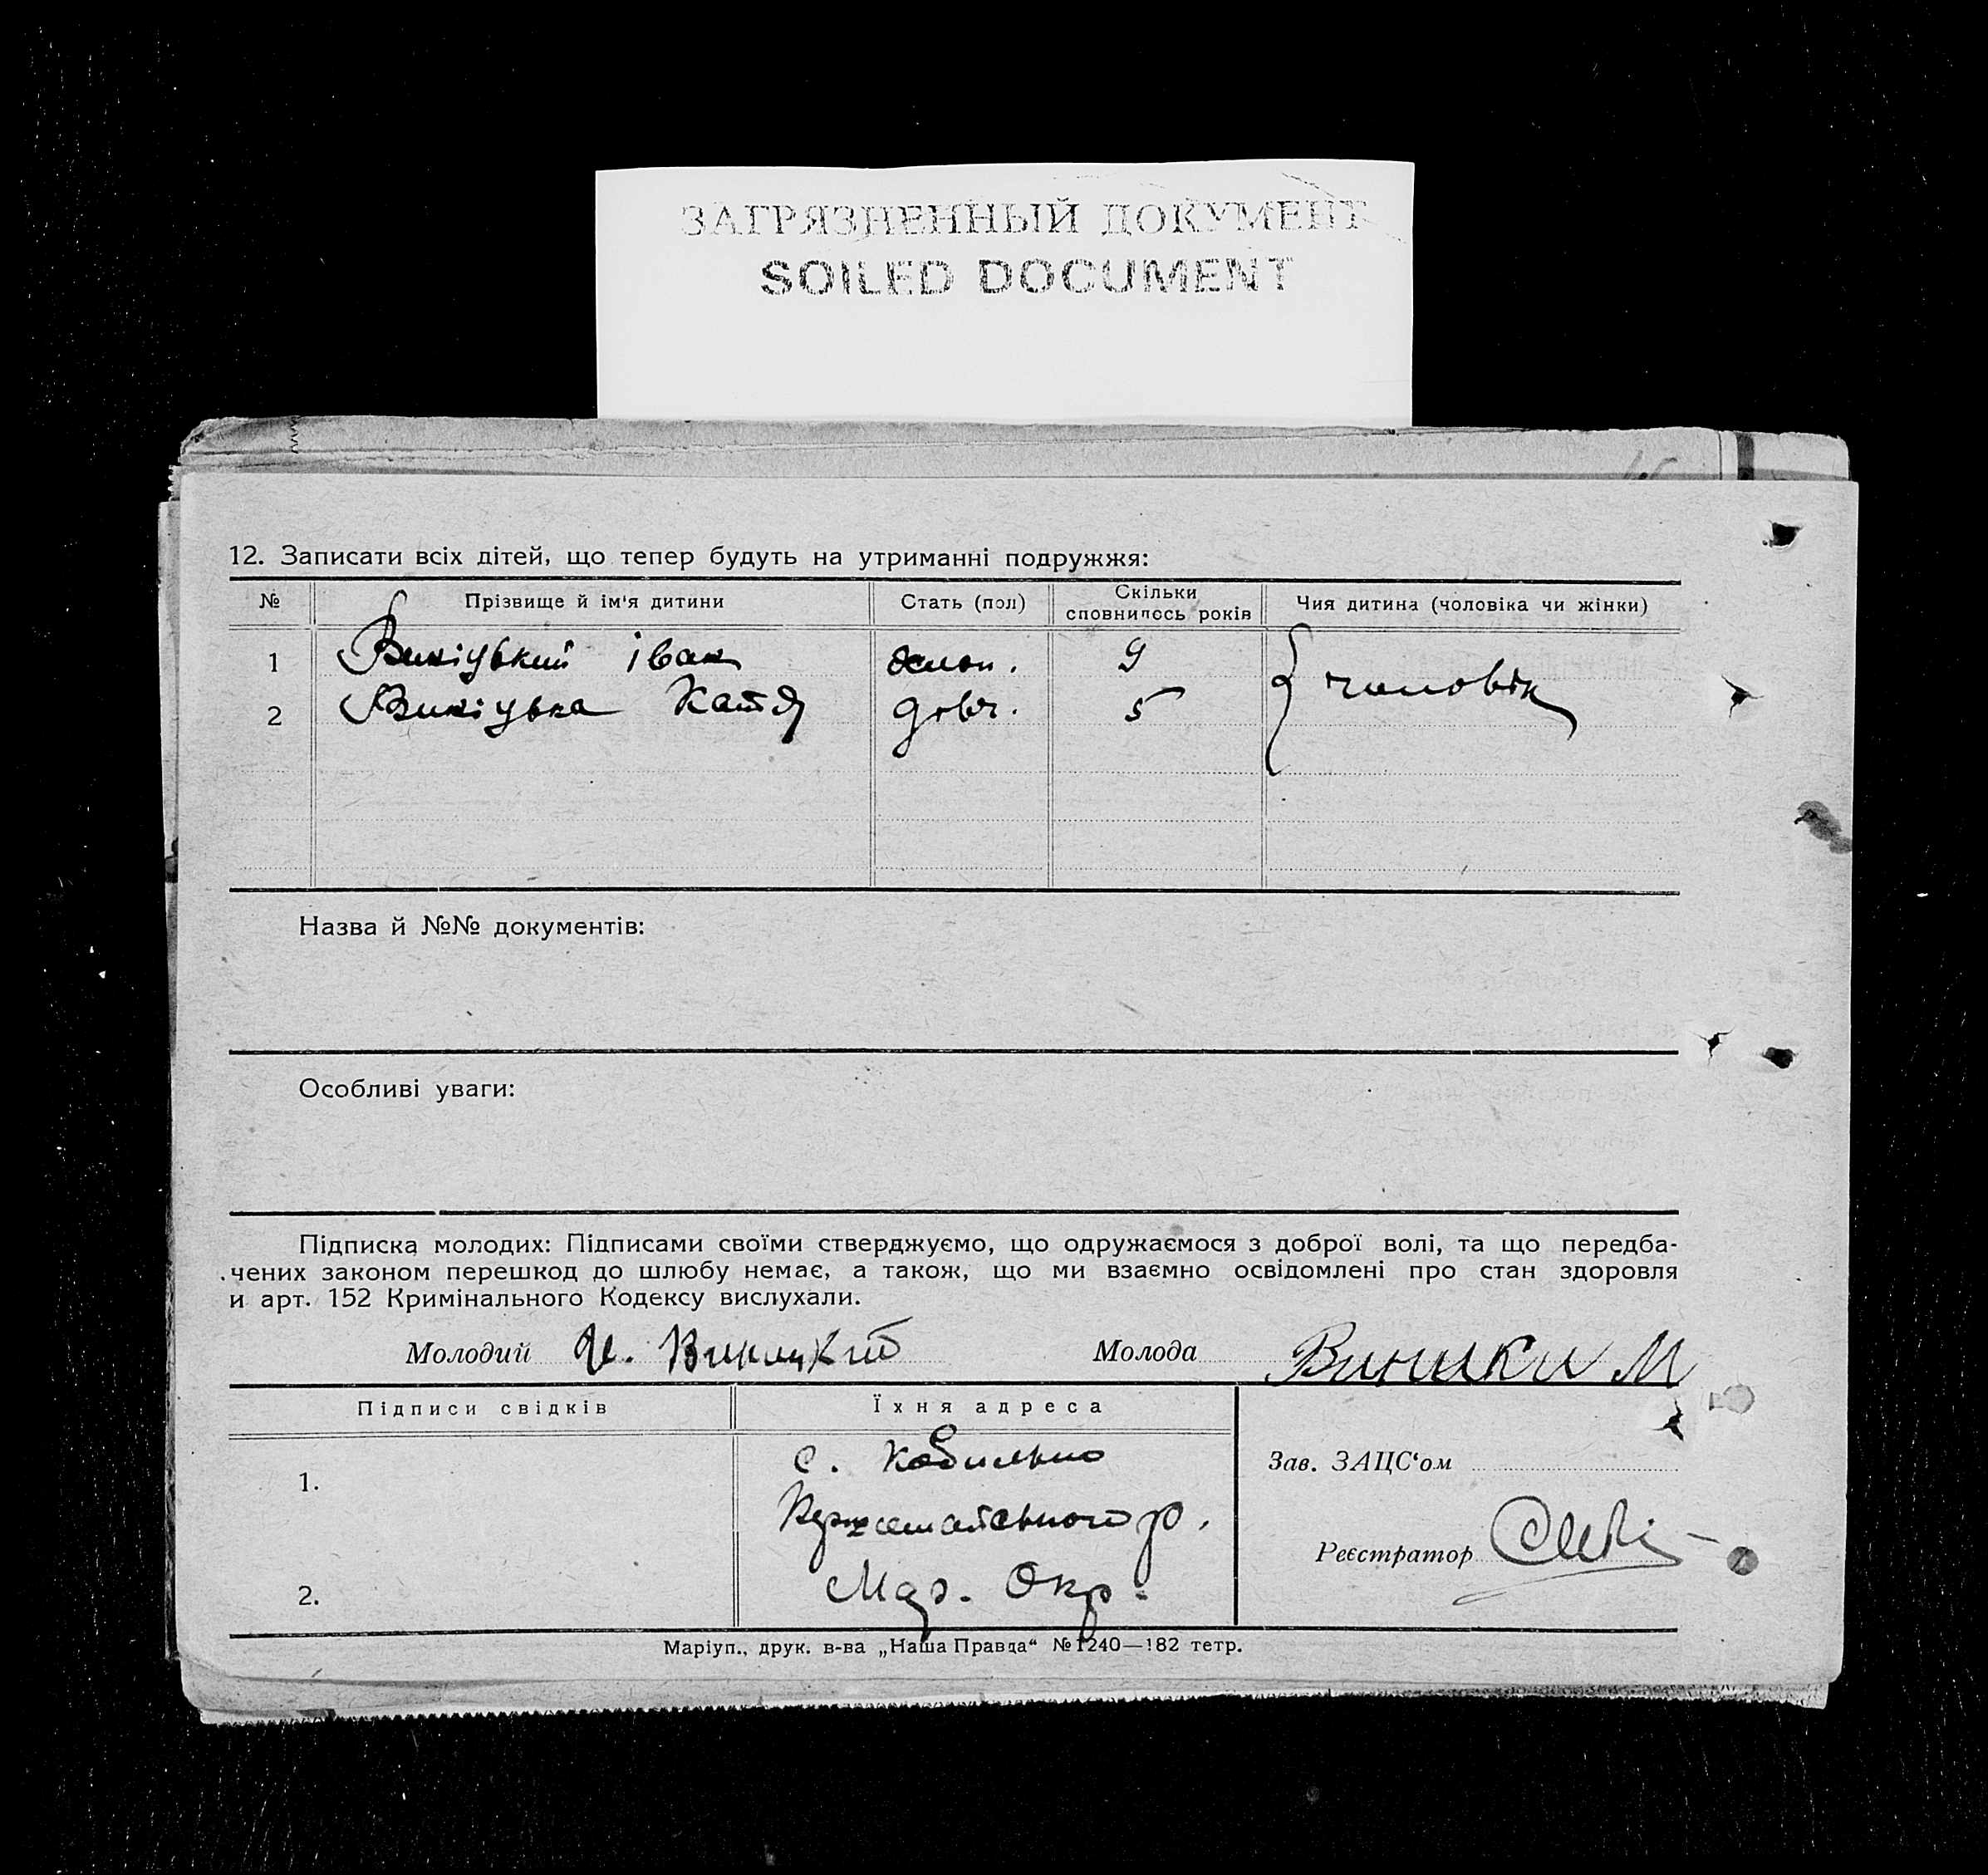 ЗАГРЯЗНЕННЫЙ ДОКУМЕНТ
SOILED DOCUMENT
12. Записати всіх дітей, що тепер будуть на утриманні подружжя:
№ Прізвище й ім'я дитини Стать (пол) Скільки сповнилось років Чия дитина (чоловіка чи жінки)
1 Виніцький іван хлоп. 9 чоловік
2 Виніцька Катя дівч. 5
Назва й №№ документів:
Особливі уваги:
Підписка молодих: Підписами своїми стверджуємо, що одружаємося з доброї волі, та що передба-
чених законом перешкод до шлюбу немає, а також, що ми взаємно освідомлені про стан здоровля
и арт. 152 Кримінального Кодексу вислухали.
Молодий И. Виницкий Молода М
Підписи свідків Їхня адреса
1. с. Кобильно Зав. ЗАЦС'ом
р. Реєстратор
2. Окр.
Маріуп., друк. в-ва „Наша Правда“ № 1240—182 тетр.